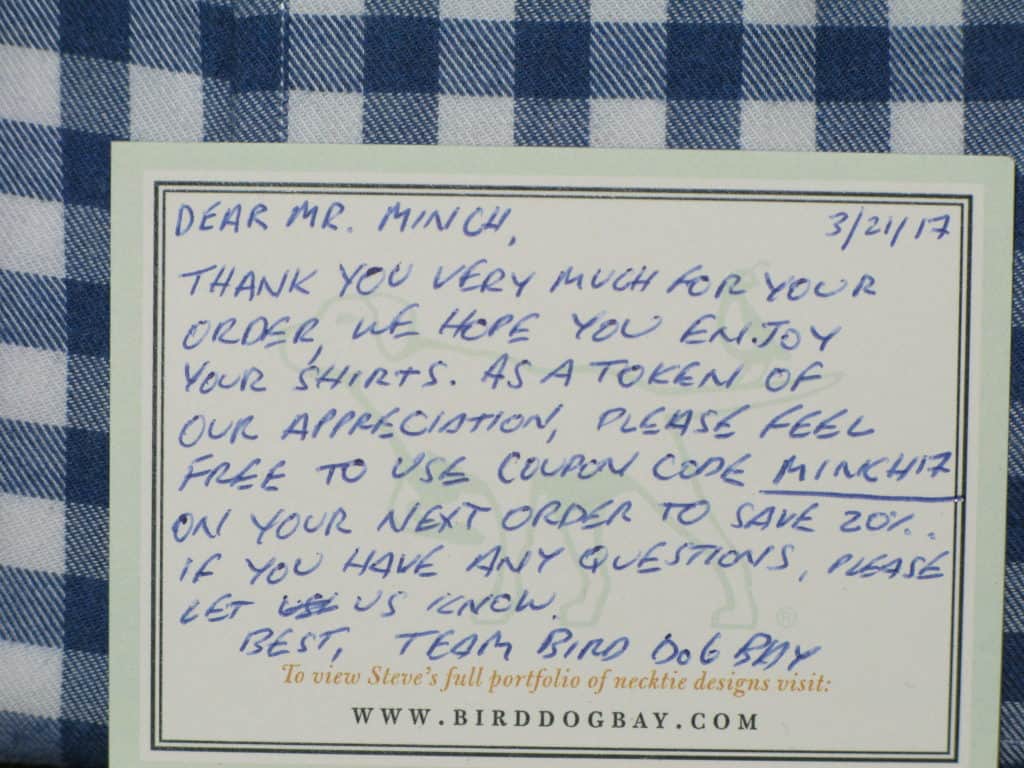 DEAR MR. MINCH, 3/21/17
THANK YOU VERY MUCH FOR YOUR
ORDER, WE HOPE YOU ENJOY
YOUR SHIRTS. AS A TOKEN OF
OUR APPRECIATION, PLEASE FEEL
FREE TO USE COUPON CODE MINCH17
ON YOUR NEXT ORDER TO SAVE 20%.
IF YOU HAVE ANY QUESTIONS, PLEASE
LET US KNOW.
BEST, TEAM BIRD DOG BAY
To view Steve's full portfolio of necktie designs visit:
WWW.BIRDDOGBAY.COM
®